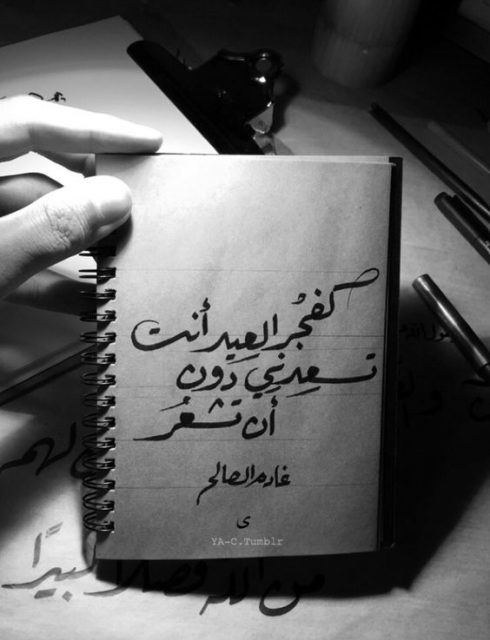 كفجر العيد أنت
تسعدني دون
أن تشعر
غاده الصالح
ى
YA-C.Tumblr
من الله وفضلا كبيراً